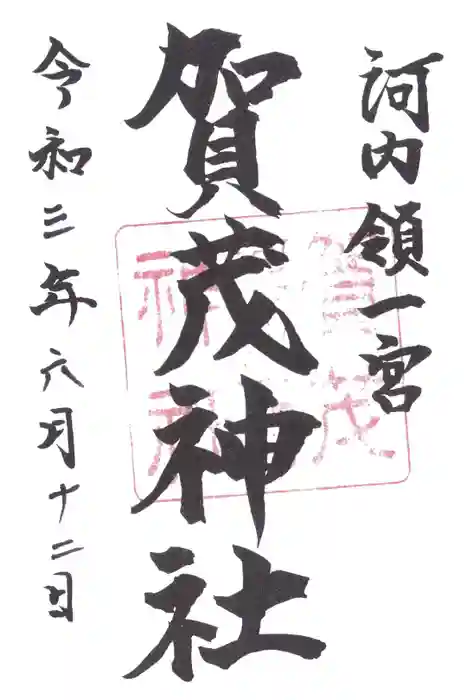 河内領一宮
賀茂神社
令和三年六月十二日
賀茂
神社